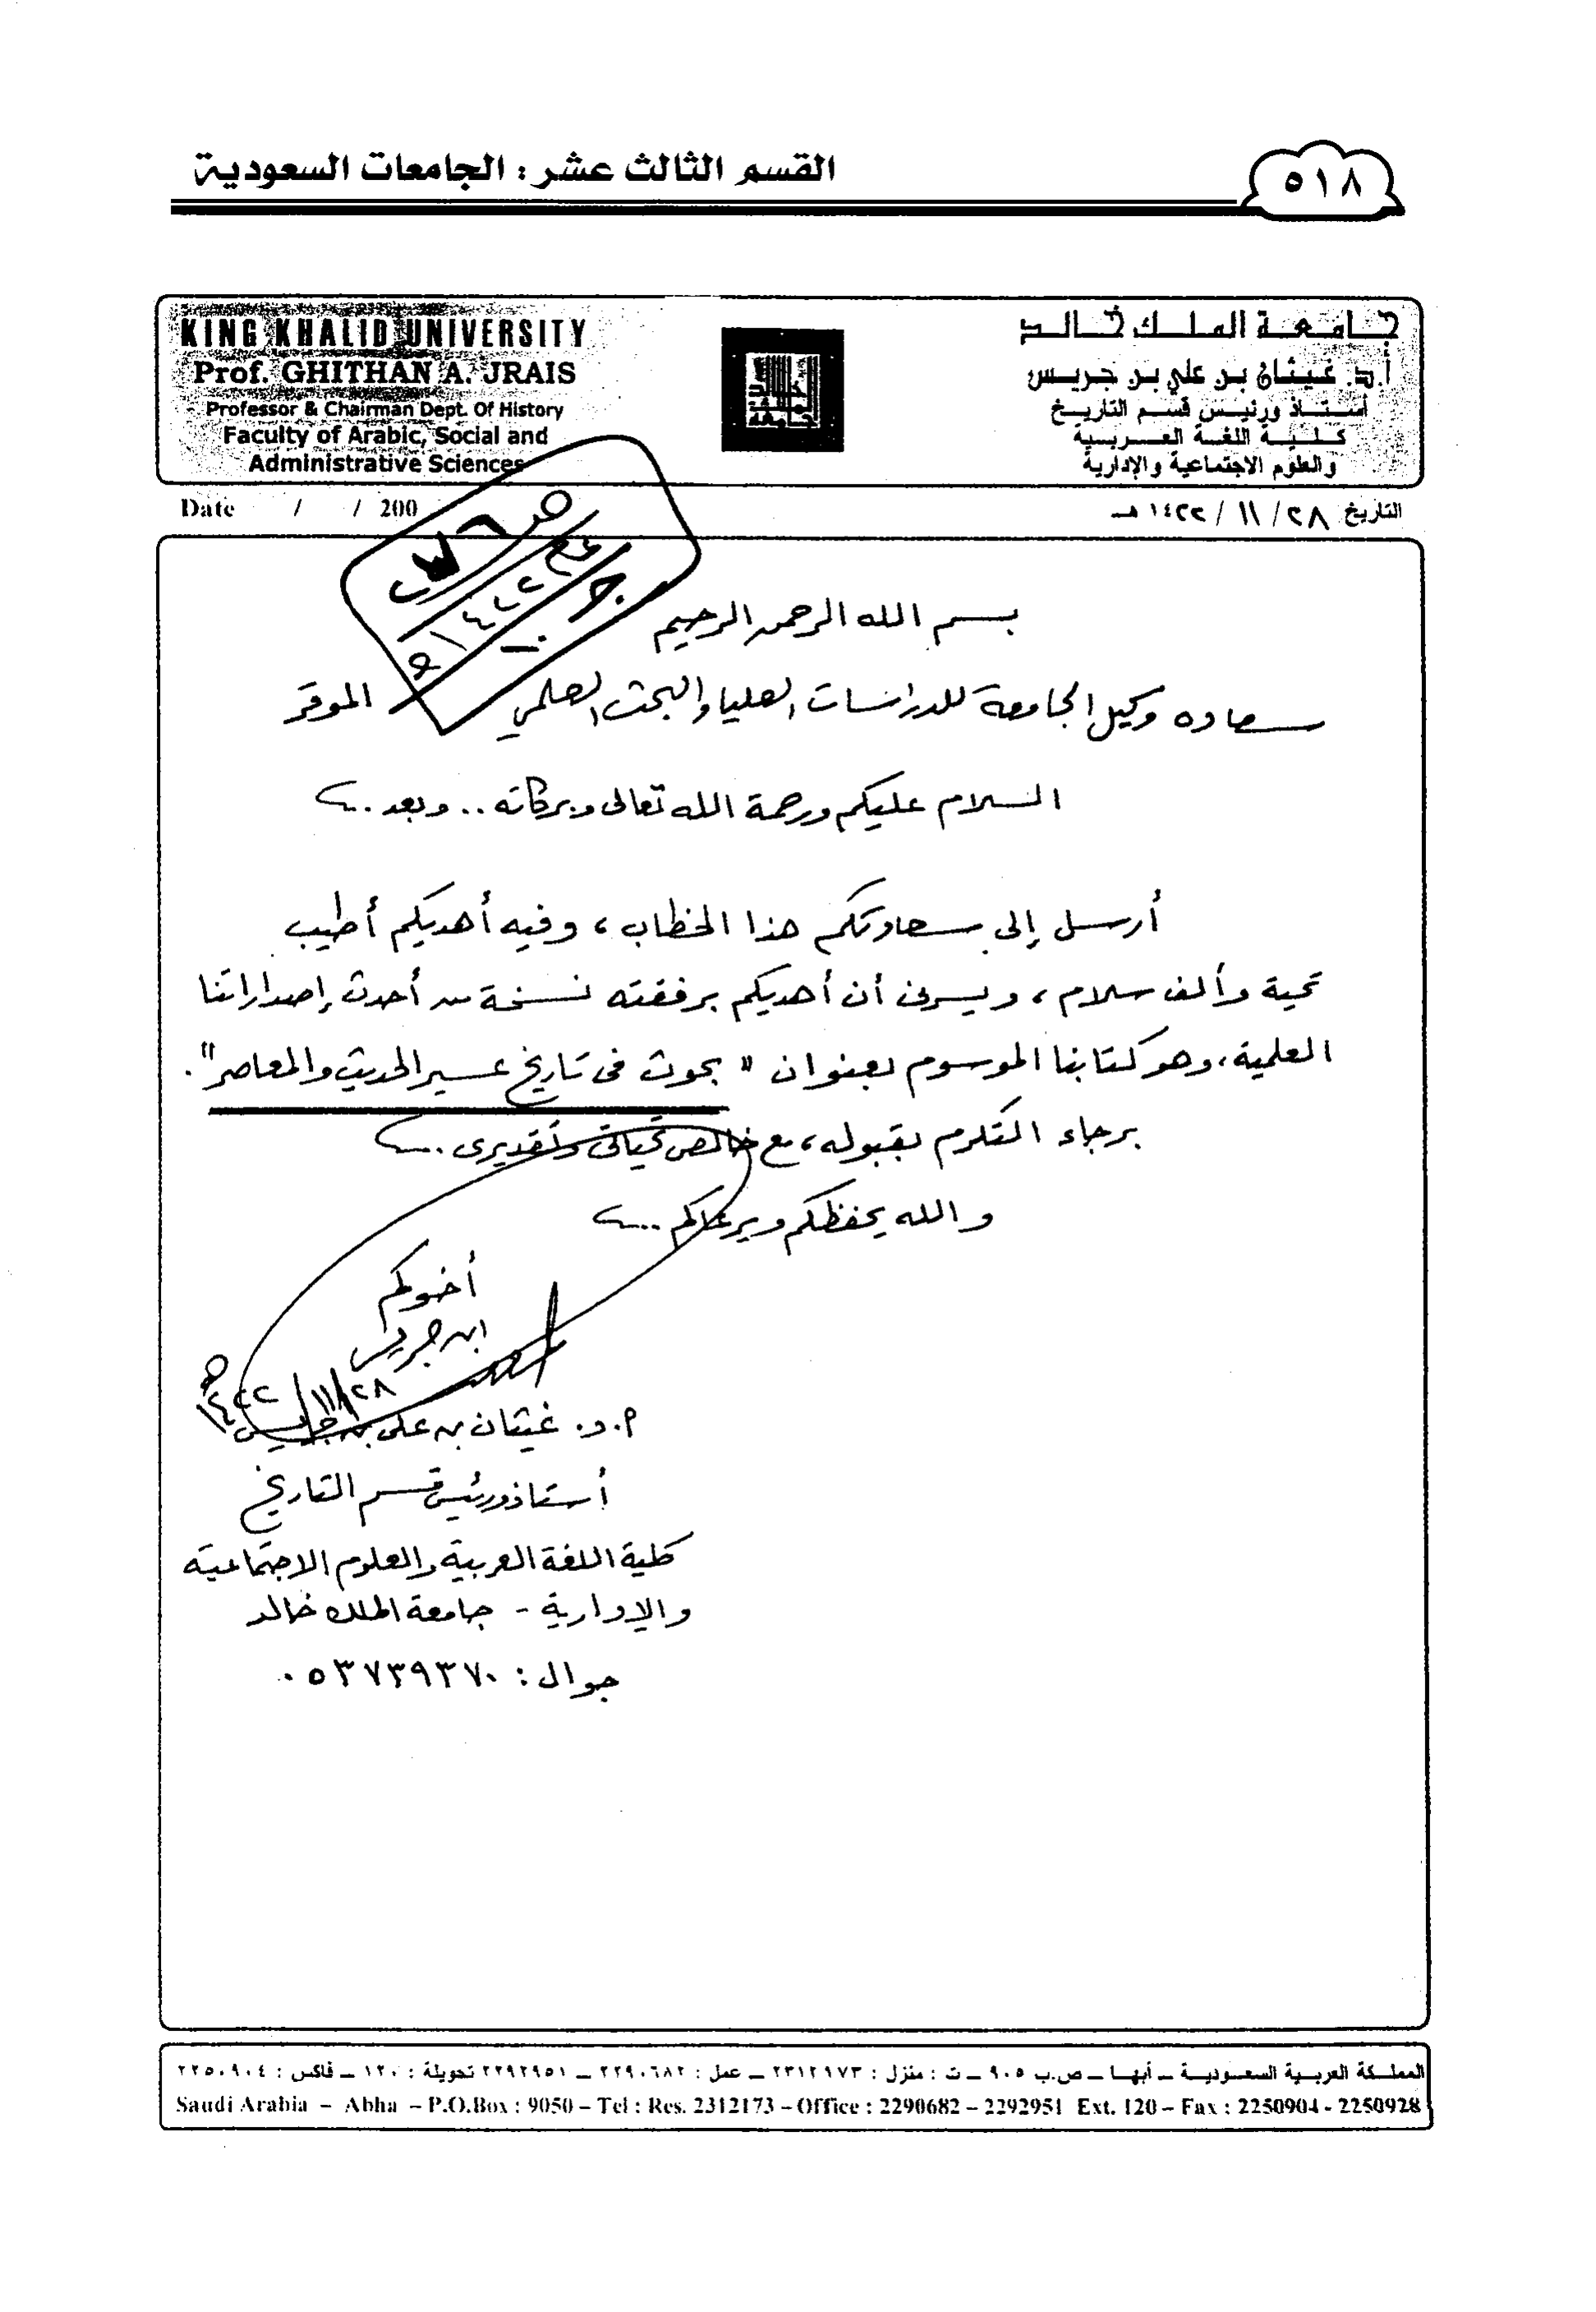 القسم الثالث عشر : الجامعات السعودية
٥١٨
KING KHALID UNIVERSITY
Prof. GHITHAN A. JRAIS
Professor & Chairman Dept. Of History
Faculty of Arabic, Social and
Administrative Sciences
جامعة الملك خالد
أ.د. غيثان بن علي بن جريس
أستاذ ورئيس قسم التاريخ
كلية اللغة العربية
والعلوم الاجتماعية والإدارية
Date / / 200
التاريخ ٢٨ / ١١ / ١٤٢٢ هـ
بسم الله الرحمن الرحيم
سعادة وكيل الجامعة للدراسات العليا والبحث العلمي الموقر
السلام عليكم ورحمة الله تعالى وبركاته .. وبعد ..
أرسل إلى سعادتكم هذا الخطاب ، وفيه أهديكم أطيب
تحية وألف سلام ، ويسرني أن أهديكم برفقته نسخة من أحدث إصداراتنا
العلمية ، وهو كتابنا الموسوم بعنوان " بحوث في تاريخ عسير الحديث والمعاصر " .
برجاء التكرم بقبوله ، مع خالص تحياتي وتقديري ...
والله يحفظكم ويرعاكم ...
أخوكم
ابن جريس
٢٨/١١/١٤٢٢هـ
أ.د. غيثان بن علي بن جريس
أستاذ ورئيس قسم التاريخ
كلية اللغة العربية والعلوم الاجتماعية
والإدارية - جامعة الملك خالد
جوال : ٠٥٣٧٣٩٣٧٠
المملكة العربية السعودية – أبها – ص.ب ٩٠٥ – ت : منزل : ٢٣١٢٩٧٣ – عمل : ٢٢٩٠٦٨٢ – ٢٢٩٢٩٥١ تحويلة : ١٢٠ – فاكس : ٢٢٥٠٩٠٤
Saudi Arabia – Abha – P.O.Box : 9050 – Tel : Res. 2312173 – Office : 2290682 – 2292951 Ext. 120 – Fax : 2250904 - 2250928